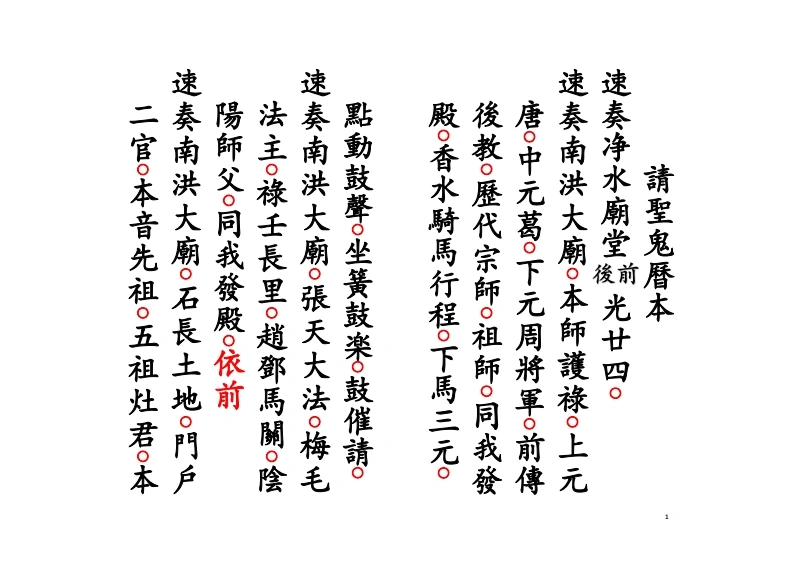 請聖鬼曆本
速奏净水廟堂後前光廿四。
速奏南洪大廟。本師護祿。上元
唐。中元葛。下元周將軍。前傳
後教。歷代宗師。祖師。同我發
殿。香水騎馬行程。下馬三元。
點動鼓聲。坐簧鼓楽。鼓催請。
速奏南洪大廟。張天大法。梅毛
法主。祿壬長里。趙鄧馬關。陰
陽師父。同我發殿。依前
速奏南洪大廟。石長土地。門戶
二官。本音先祖。五祖灶君。本
1